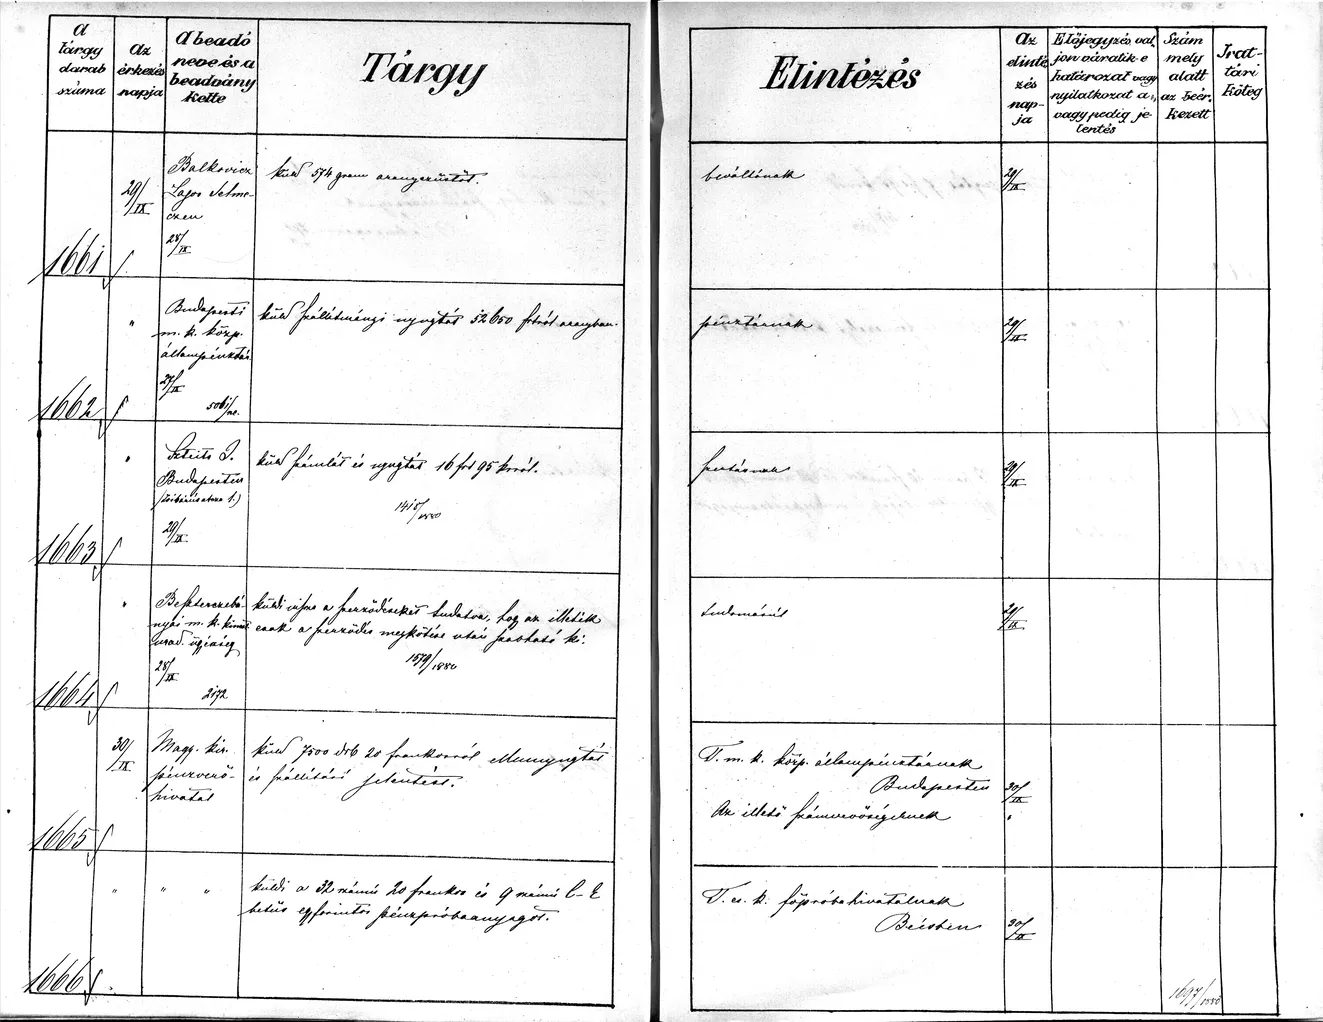 A tárgy darab száma
Az érkezés napja
A beadó neve és a beadvány kelte
Tárgy
Elintézés
Az elintézés napja
Előjegyzés valjon váratik e határozat vagy nyilatkozat a., vagy pedig jelentés
Szám mely alatt az beérkezett
Irattári Köteg
1661
29/IX
Balkovicz
Lajos Selme-
czen
28/IX
küld 574 gram aranyezüstöt.
beváltónak
29/IX
1662
"
Budapesti
m. k. közp.
állampénztár
27/IX
küld szállítmányi nyugtát 52650 frtról aranyban.
pénztárnak
29/IX
1663
"
J.
Budapesten
29/IX
küld számlát és nyugtát 16 frt 95 krról.
1415/1880
29/IX
1664
"
Beszterczebá-
nyai m. k.
ügyészség
28/IX
2172
küldi vissza a szerződéseket tudatva, hogy az illeték
csak a szerződés megkötése után szabható ki.
1579/1880
tudomásúl
29/IX
1665
30/IX
Magy. kir.
pénzverő-
hivatal
küld 7500 drb 20 frankosról ellennyugtát
és szállítási jelentést.
T. m. k. közp. állampénztárnak
Budapesten
30/IX
Az illető számvevőségeknek
"
1666
" " "
küldi a 32 számú 20 frankos és 9 számú C-E
betűs egyforintos pénzpróbaanyagot.
T. cs. k. főpróbahivatalnak
Bécsben
30/IX
1697/1880